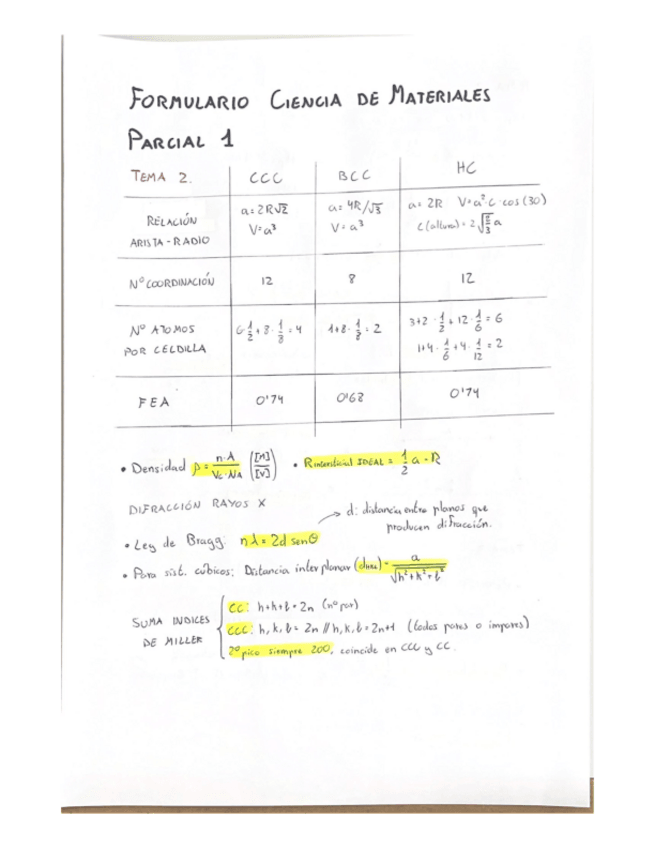 FORMULARIO CIENCIA DE MATERIALES
PARCIAL 1
TEMA 2. CCC BCC HC
RELACIÓN ARISTA-RADIO a=2R√2 V=a³ a=4R/√3 V=a³ a=2R V=a²·c·cos(30) c(altura)=2√(2/3) a
Nº COORDINACIÓN 12 8 12
Nº ATOMOS POR CELDILLA 6·1/2+8·1/8=4 1+8·1/8=2 3+2·1/2+12·1/6=6 1+4·1/6+4·1/12=2
FEA 0'74 0'68 0'74
• Densidad ρ=n·A/Vc·NA ([M]/[V]) • Rintersticial IDEAL = 1/2 a - R
DIFRACCIÓN RAYOS X
→ d: distancia entre planos que
producen difracción.
• Ley de Bragg: nλ=2d senθ
• Para sist. cúbicos: Distancia interplanar (dhkl)= a/√h²+k²+l²
SUMA INDICES DE MILLER
CC: h+k+l=2n (nº par)
CCC: h,k,l=2n // h,k,l=2n+1 (todos pares o impares)
2º pico siempre 200, coincide en CCC y CC.